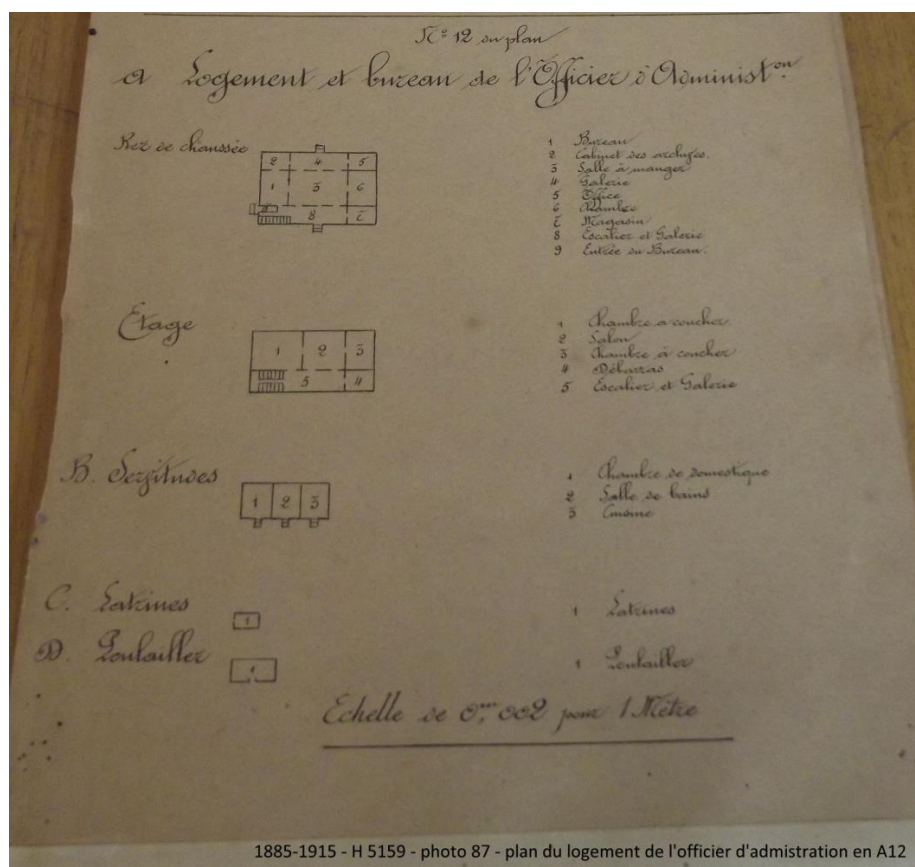 N.º 12 du plan
A Logement et bureau de l'Officier d'Administ.on
Rez de chaussée
2 4 5
1 3 6
9
8 7
1 Bureau
2 Cabinet des archives.
3 Salle à manger
4 Galerie
5 Office
6 Chambre
7 Magasin
8 Escalier et Galerie
9 Entrée du Bureau.
Etage
1 2 3
5 4
1 Chambre a coucher
2 Salon
3 Chambre à coucher
4 Débarras
5 Escalier et Galerie
B. Servitudes
1 2 3
1 Chambre de domestique
2 Salle de bains
3 Cuisine
C. Latrines
1
1 Latrines
D. Poulailler
1
1 Poulailler
Echelle de 0m,002 pour 1 Mètre
1885-1915 - H 5159 - photo 87 - plan du logement de l'officier d'admistration en A12